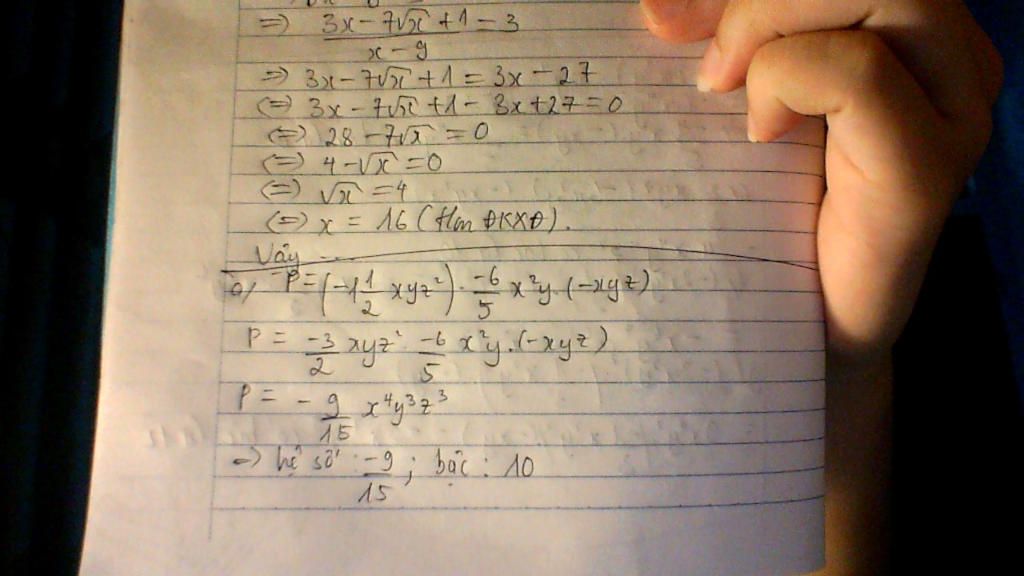 => 3x - 7√x + 1 = 3
x - 9
=> 3x - 7√x + 1 = 3x - 27
<=> 3x - 7√x + 1 - 3x + 27 = 0
<=> 28 - 7√x = 0
<=> 4 - √x = 0
<=> √x = 4
<=> x = 16 (tm ĐKXĐ).
Vậy ...
a/ P = (-1 1/2 xyz²) . -6/5 x²y . (-xyz)
P = -3/2 xyz² . -6/5 x²y . (-xyz)
P = - 9/15 x⁴y³z³
=> hệ số : -9/15 ; bậc : 10